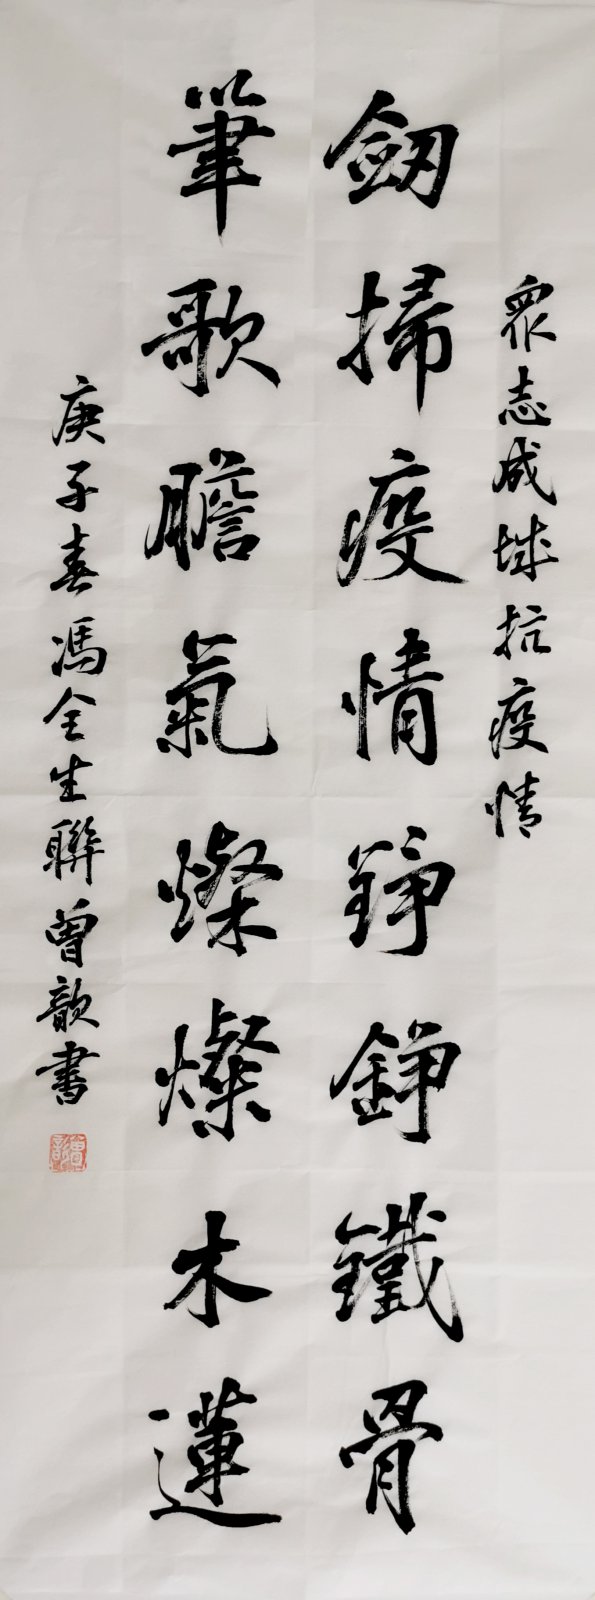 眾志成城抗疫情
劒掃疫情錚錚鐵骨
筆歌膽氣燦燦木蓮
庚子春馮全生聯曾歆書